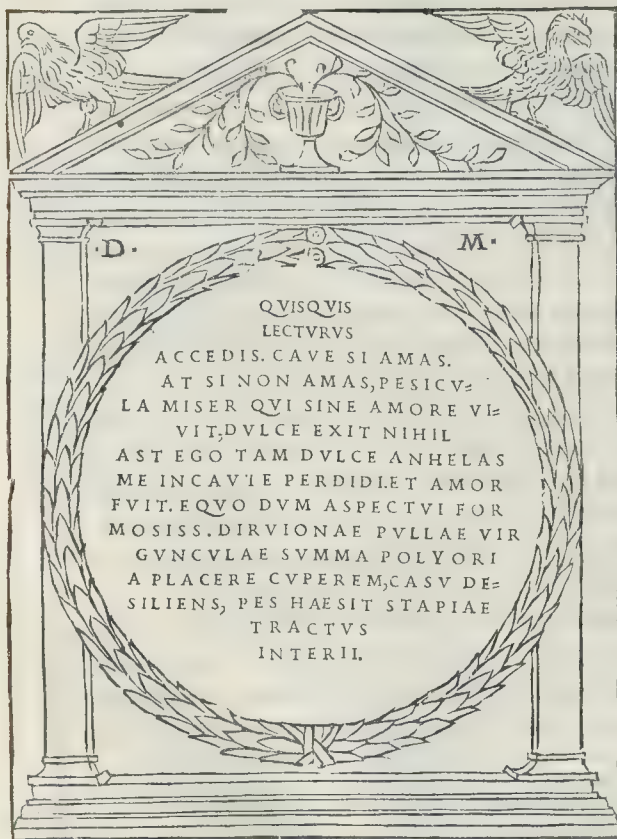 ·D· M·
QVISQVIS
LECTVRVS
ACCEDIS. CAVE SI AMAS.
AT SI NON AMAS, PESICV=
LA MISER QVI SINE AMORE VI=
VIT, DVLCE EXIT NIHIL
AST EGO TAM DVLCE ANHELAS
ME INCAVTE PERDIDI. ET AMOR
FVIT. EQVO DVM ASPECTVI FOR
MOSISS. DIRVIONAE PVLLAE VIR
GVNCVLAE SVMMA POLYORI
A PLACERE CVPEREM, CASV DE=
SILIENS, PES HAESIT STAPIAE
TRACTVS
INTERII.